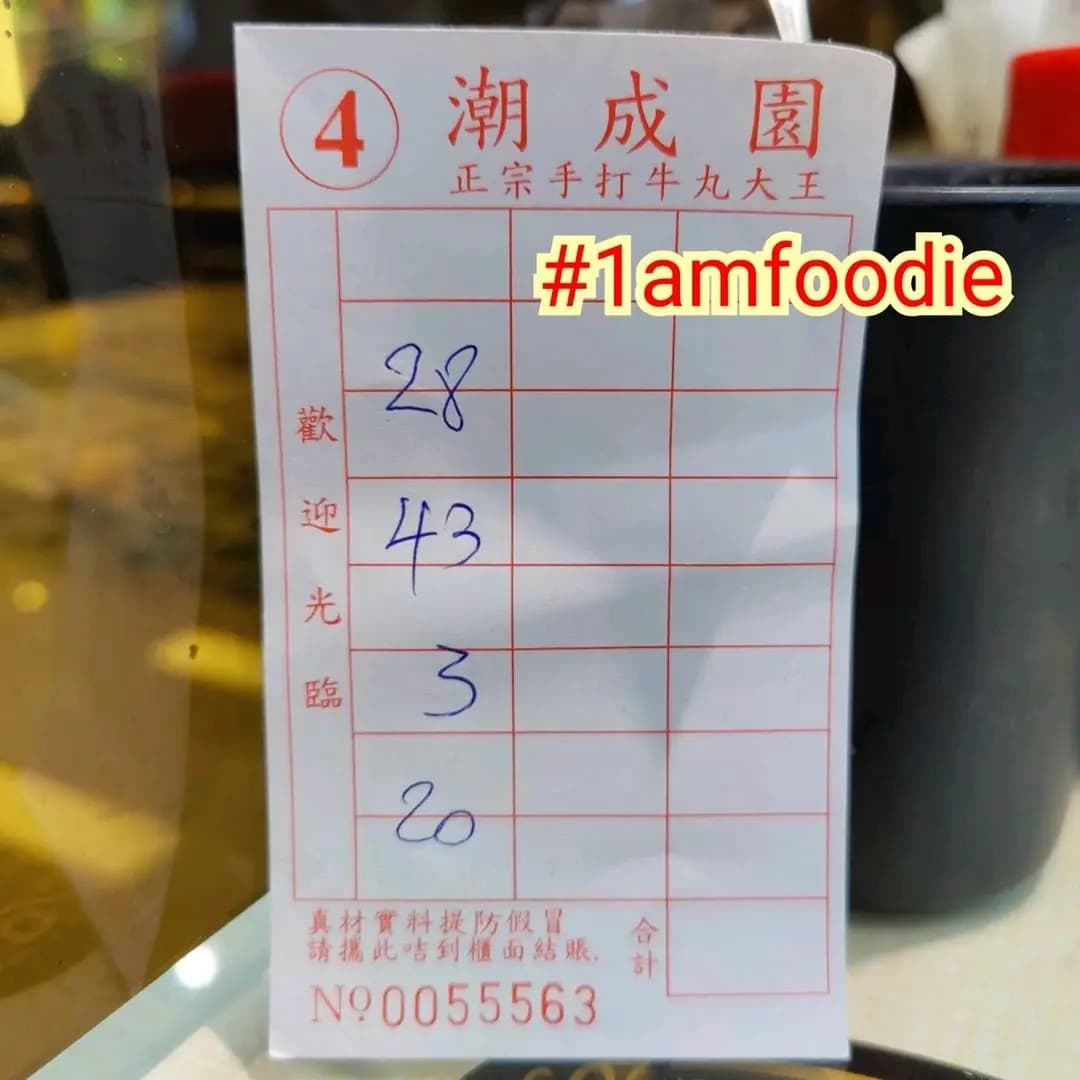 4 潮成園
正宗手打牛丸大王
#1amfoodie
歡迎光臨
28
43
3
20
真材實料提防假冒
請攜此咭到櫃面結賬.
合計
Nº0055563